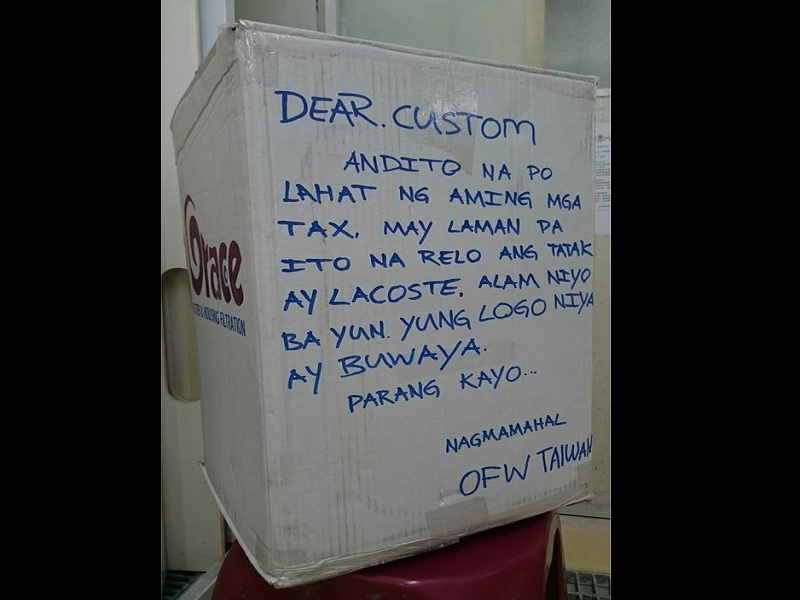 DEAR. CUSTOM
ANDITO NA PO
LAHAT NG AMING MGA
TAX. MAY LAMAN PA
ITO NA RELO ANG TATAK
AY LACOSTE. ALAM NIYO
BA YUN. YUNG LOGO NIYA
AY BUWAYA.
PARANG KAYO...
NAGMAMAHAL
OFW TAIWAN
Orace
& HOUSING FILTRATION